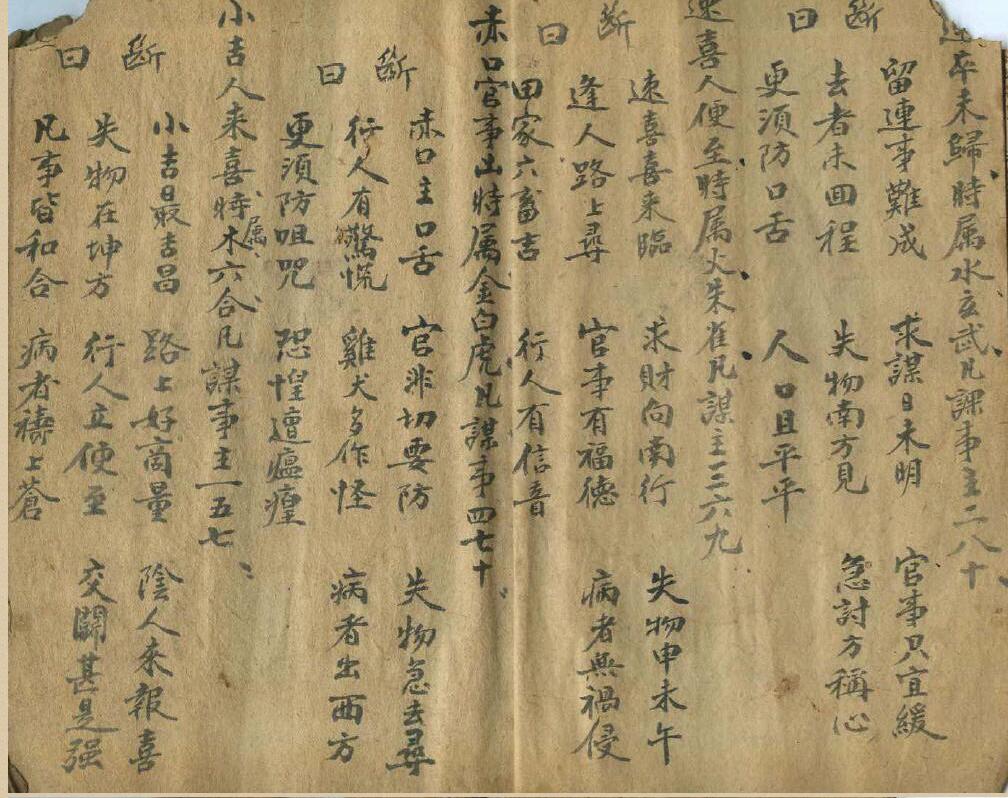 連卒未歸時属水玄武凡謀事主二八十
斷曰
留連事難成 求謀日未明 官事只宜緩
去者未回程 失物南方見 急討方稱心
更須防口舌 人口且平平
速喜人便至時属火朱雀凡謀主三六九
斷曰
速喜喜来臨 求財向南行 失物申未午
逢人路上尋 官事有福德 病者無禍侵
田家六畜吉 行人有信音
赤口官事出時属金白虎凡謀事四七十
斷曰
赤口主口舌 官非切要防 失物急去尋
行人有驚慌 雞犬多作怪 病者出西方
更須防咀咒 恐惶遭瘟瘟
小吉人来喜時属木六合凡謀事主一五七
斷曰
小吉最吉昌 路上好商量 陰人来報喜
失物在坤方 行人立便至 交關甚是强
凡事皆和合 病者禱上蒼